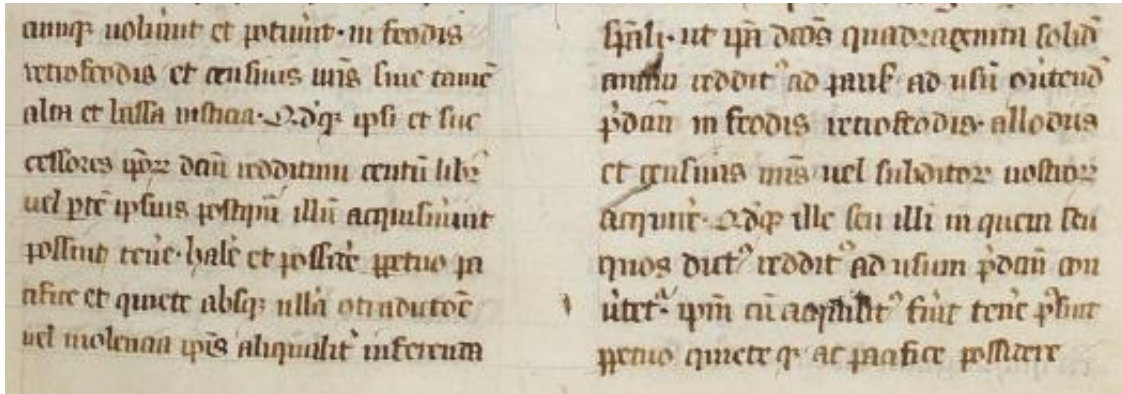 cumq; uoluīnt et potuīnt · in feodis
retrofeodis et censiuis nr̄is siue tamē
alta et bassa iusticia · Qd'q; ipsi et suc
cessores ip̄or dcm̄ redditum centū libr̄
uel p̄tē ipsius postqm̄ illū acquisiuīnt
possint tenē · habē et possidē ppetuo pa
cifice et quiete absq; ulla c̄tradictōē
uel molencia ip̄is aliqualit̄ inferenda
sp̄ali · ut ip̄a dc̄os quadraginta solid̄
annui reddit' ad paris̄ ad usū c̄uertend̄
p̄dcm̄ in feodis retrofeodis · allodiis
et censiuis nr̄is uel subditor nostror
acquirē · Qd'q; ille seu illi in quem seu
quos dict' reddit' ad usum p̄dcm̄ con
ūtet' · ip̄m cū acq̄sit' fūit tenē p̄sint
ppetuo quiete q; ac pacifice possidere